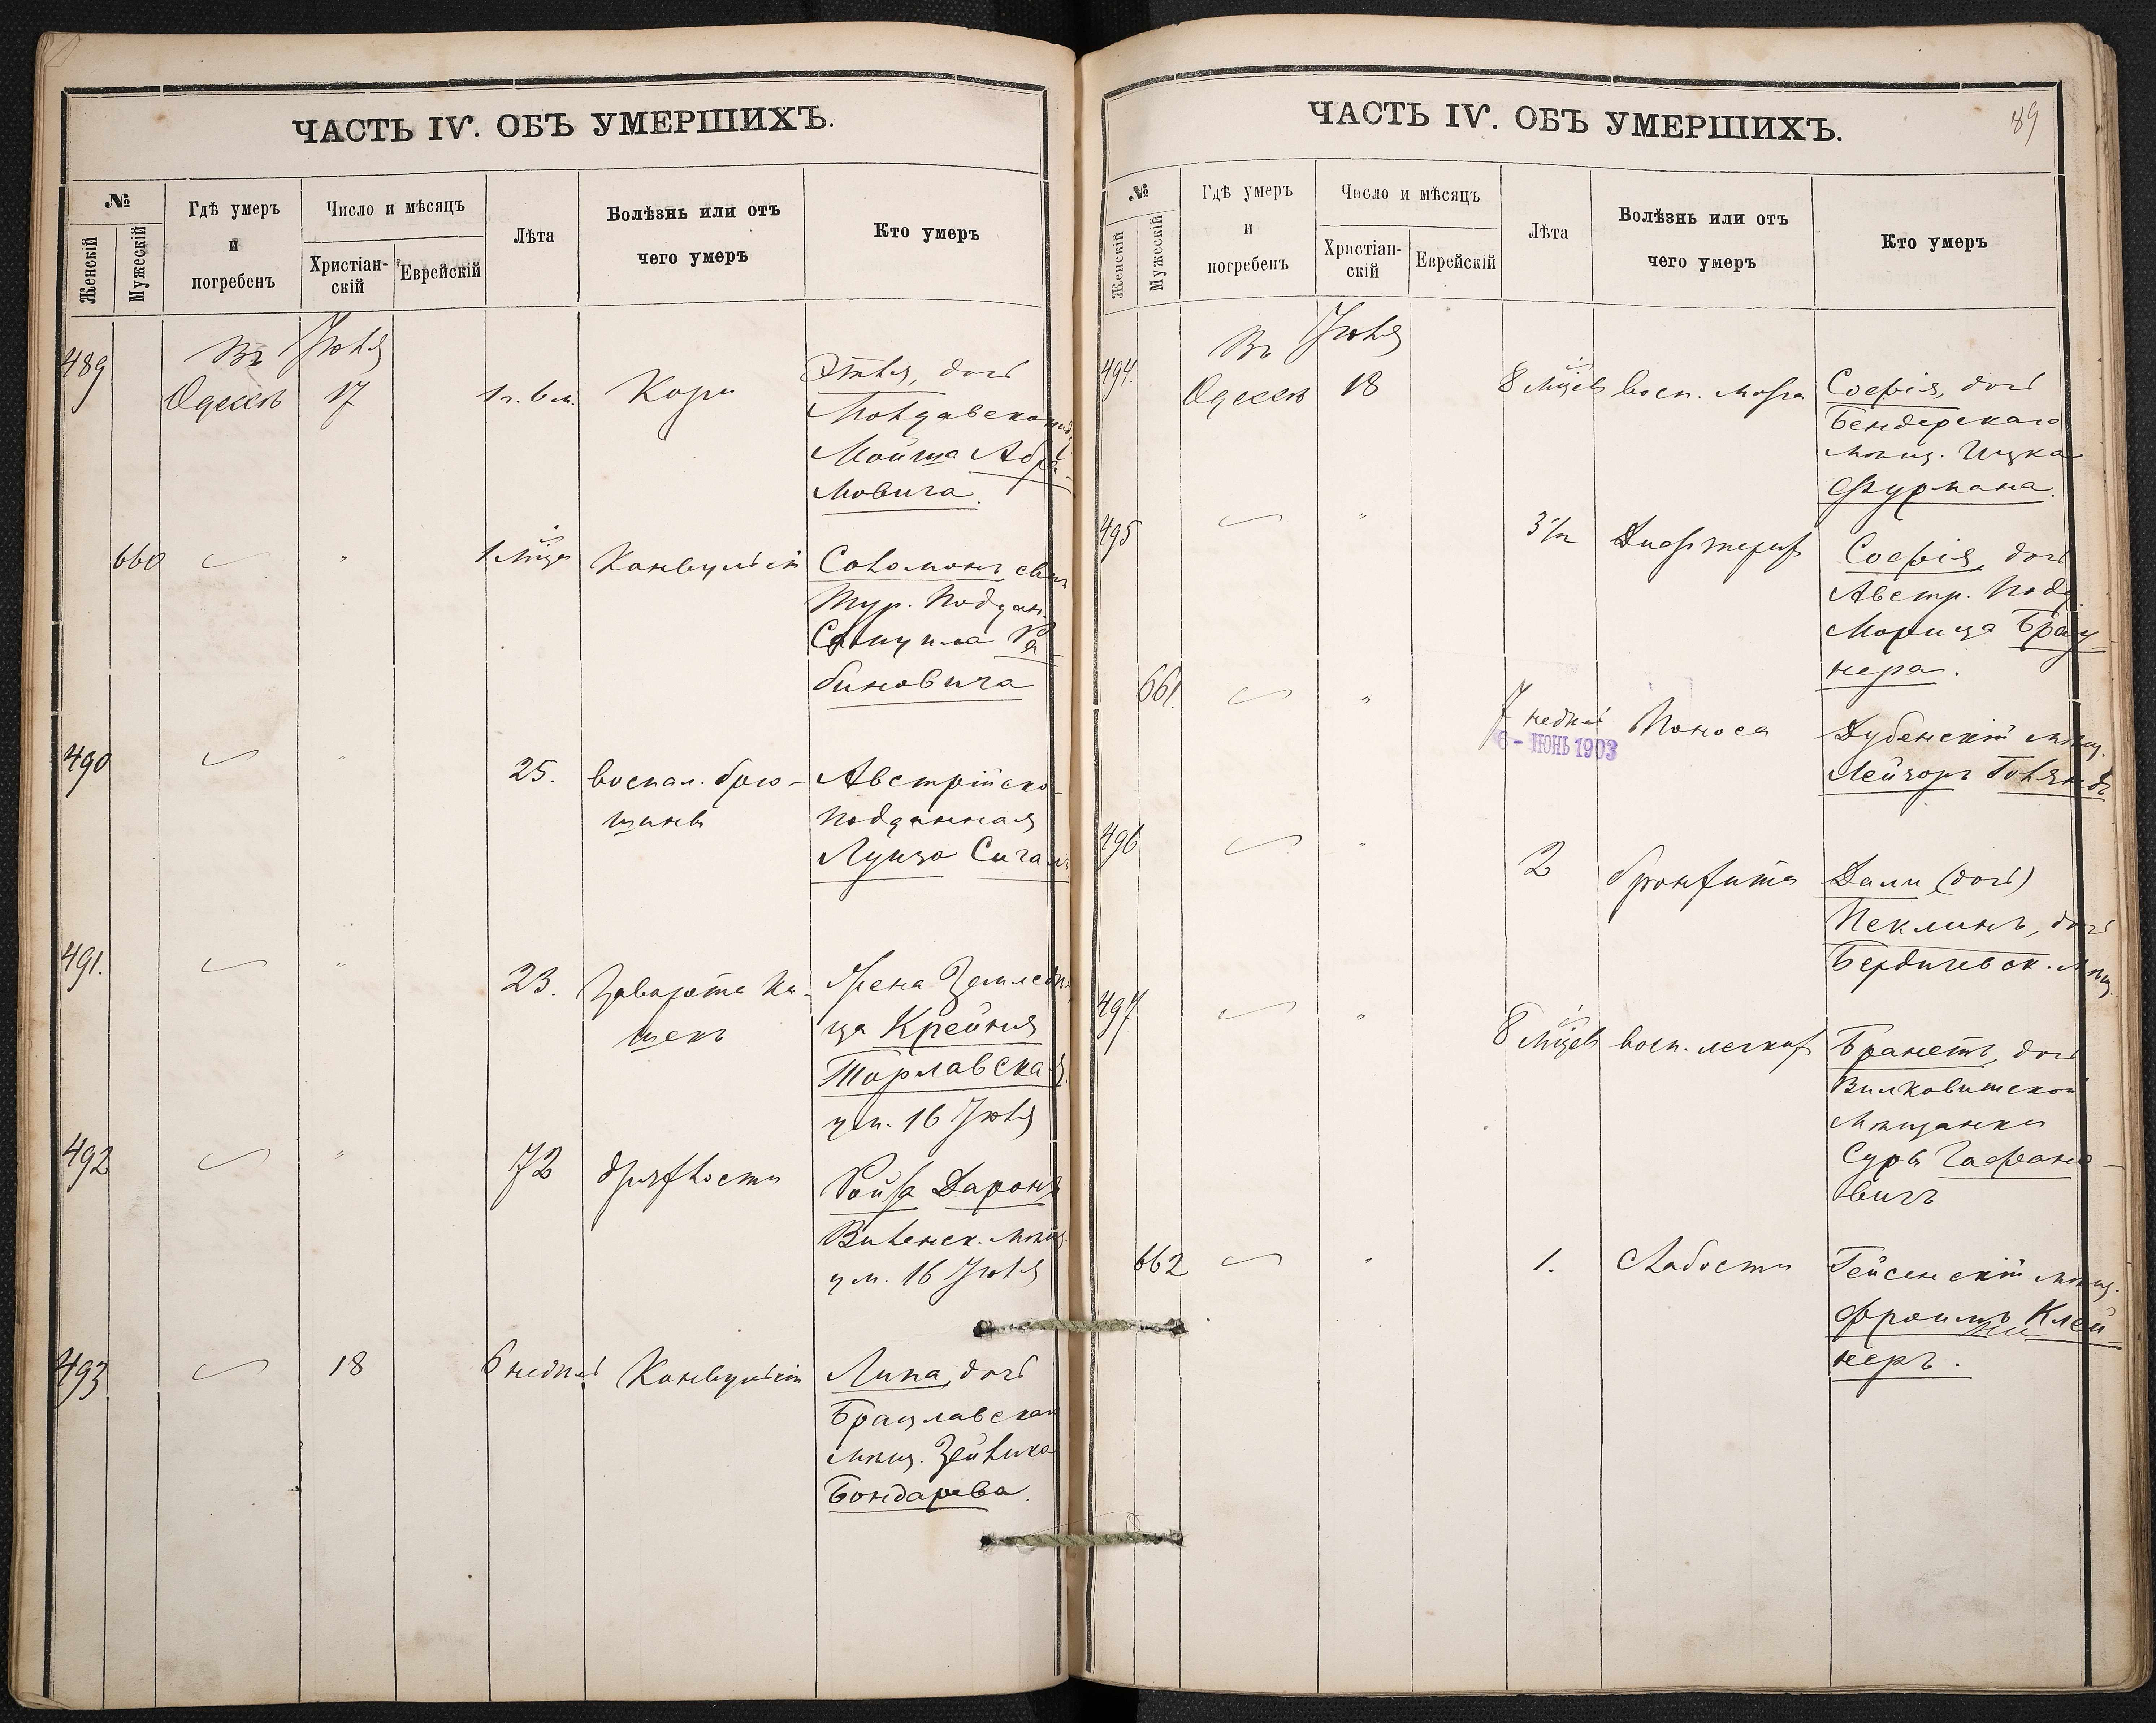 ЧАСТЬ IV. ОБЪ УМЕРШИХЪ.
№
Женскій
Мужескій
Гдѣ умеръ
и
погребенъ
Число и мѣсяцъ
Христіан-
скій
Еврейскій
Лѣта
Болѣзнь или отъ
чего умеръ
Кто умеръ
489
Въ Іюля
Одессѣ 17 1 г. 6 м. Кори
Этля, дочь
Молдавскоподд.
Мойша Абра-
мовича.
660 " 1 Мѣсц. Конвульсій
Соломонъ, сынъ
Тур. Поддан.
Самуила Ра-
биновича
490 " 25. воспал. брю-
шины
Австрійско-
подданная
Луиза Сигалъ
491. " 23. Заворота ки-
шекъ
Жена Земледѣль
ца Крейня
Торлавская
ум. 16 Іюля
492 " 72 дряхлости
Ройза Даронъ
Виленск. мѣщ.
ум. 16 Іюля
493 18 6 недѣль Конвульсій
Липа, дочь
Брацлавскаго
мѣщ. Зейлика
Бондарева.
ЧАСТЬ IV. ОБЪ УМЕРШИХЪ.
89
№
Женскій
Мужескій
Гдѣ умеръ
и
погребенъ
Число и мѣсяцъ
Христіан-
скій
Еврейскій
Лѣта
Болѣзнь или отъ
чего умеръ
Кто умеръ
494.
Въ Іюля
Одессѣ 18 8 Мѣсцевъ восп. мозга
Софія, дочь
Бендерскаго
мѣщ. Ицка
Фурмана.
495 " 3 1/2 Дифтерита
Софія, дочь
Австр. Подд.
Морица Брау-
нера.
661. " 7 недѣль Поноса
6 - ІЮНЬ 1903
Дубенскій мѣщ.
Лейзоръ Голяндъ
496 " 2 бронхита
Дали (дочь)
Пеклинъ, дочь
Бердичевск. мѣщ.
497 " 8 Мѣсцевъ восп. легкихъ
Бранетъ, дочь
Вилковишской
Мѣщанки
Суры Гафано-
вичъ
662 " 1. Слабости
Гейсенскій мѣщ.
Фроимъ Клей-
неръ.